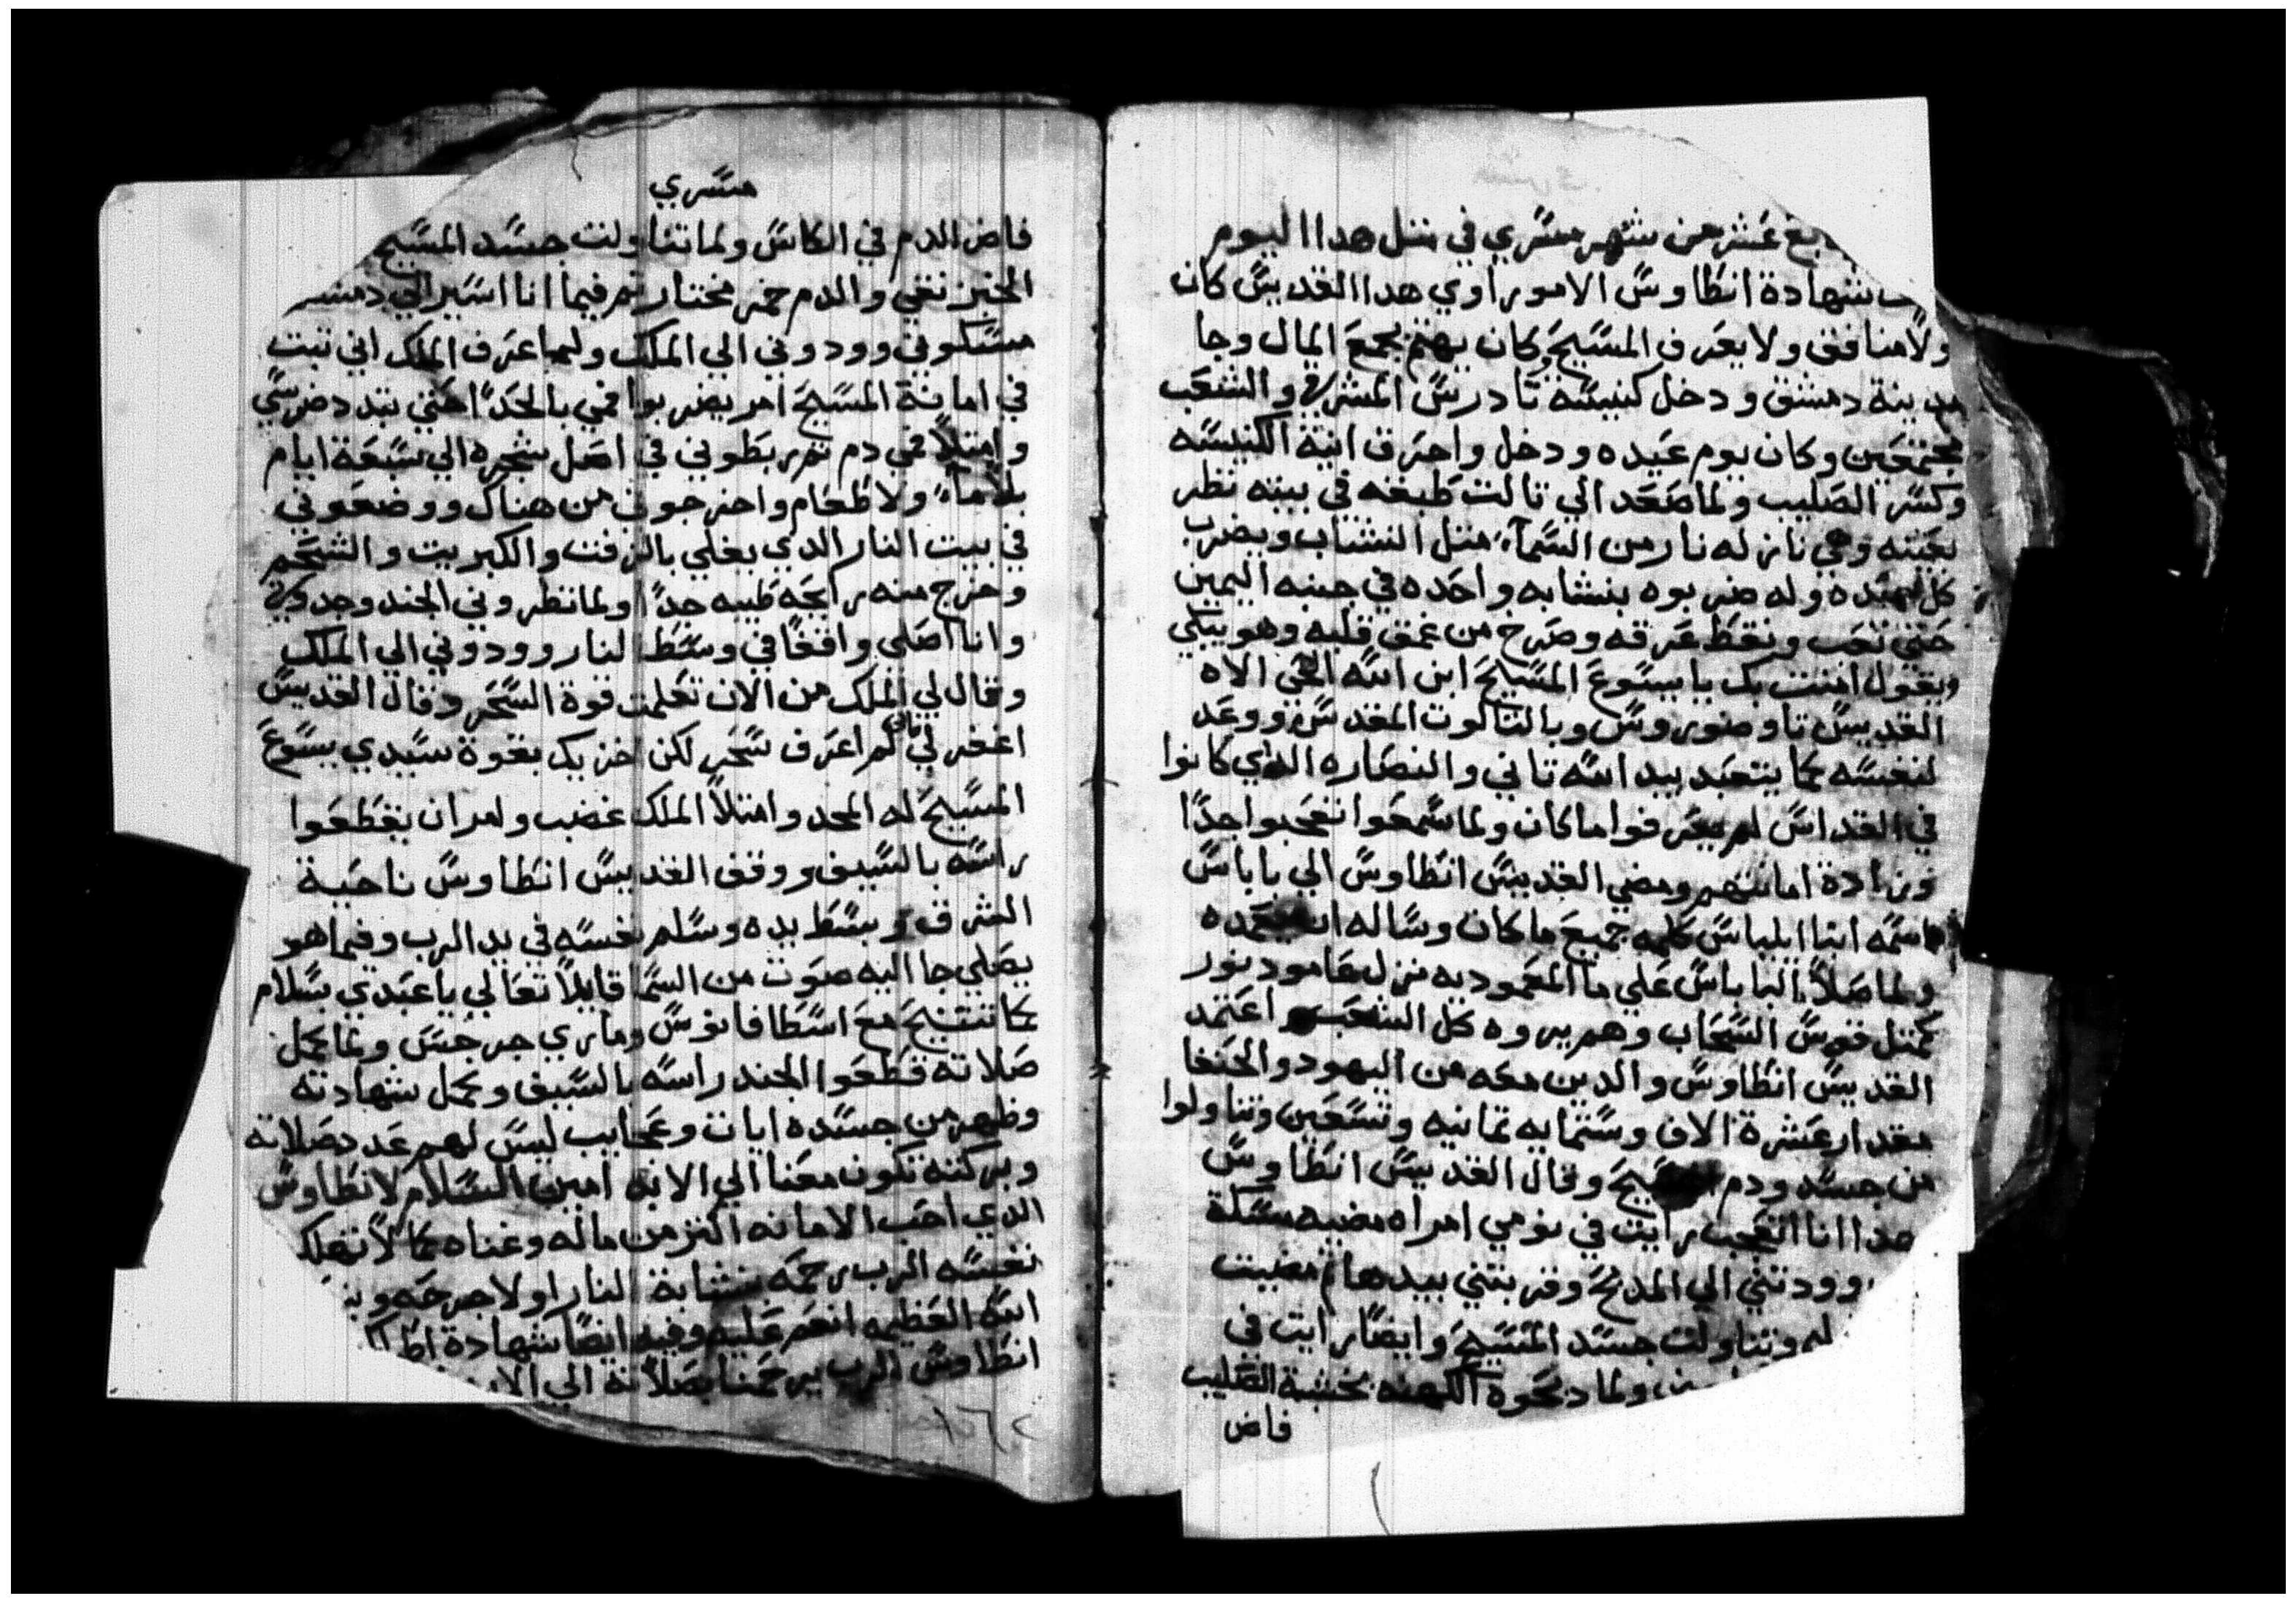 عشر من شهر مسري في مثل هدا اليوم
شهادة انطاوس الاموراوي هدا القديس كان
ولا منافق ولا يعرف المسيح وكان يهتم بجمع المال وجا
مدينة دمشق ودخل كنيسة تادرس المشرقي والشعب
مجتمعين وكان يوم عيده ودخل واحرق انية الكنيسه
وكسر الصليب ولما صعد الي تالت طبقه في بيته نظر
بعينه وهي نازله نار من السمآء مثل النشاب ويضرب
كل وله ضربوه بنشابه واحده في جنبه اليمين
حتي تعب ونقط عرقه وصرخ من عمق قلبه وهو يبكي
ويقول امنت بك يا يسوع المسيح ابن الله الحي الاه
القديس تاوضوروس وبالتالوت المقدس ووعد
لنفسه كما يتعبد بيد الله تاني والنصاره الذي كانوا
في القداس لم يعرفوا ما كان ولما سمعوا اتعجبوا جدًا
وزادة امانتهم ومضي القديس انطاوس الي باباس
اسمه انبا ايلياس كلمه جميع ما كان وساله ان يعمده
ولما صلاً الباباس علي ما المعموديه نزل عامود نور
كمثل قوس السحاب وهم يروه كل الشعب اعتمد
القديس انطاوس والدين معه من اليهود والحنفا
مقدار عشرة الاف وستمايه تمانيه وتسعين وتناولوا
من جسد ودم المسيح وقال القديس انطاوس
هدا انا اتعجب رايت في نومي امراه مضيه مسكة
وودتني الي المدبح وقربتني بيدها تم مضيت
وتناولت جسد المسيح وايضًا رايت في
ولما دبحوه الكهنه بخشبة الصليب
فاض
مسري
فاض الدم في الكاس ولما تناولت جسد المسيح
الخبز نقي والدم خمر مختار تم فيما انا اسير الي
مسكوني وودوني الي الملك ولما عرف الملك اني تبت
في امانة المسيح امر يضربوا فمي بالحداً حتي تبدد ضرسي
وامتلاً فمي دم تم ربطوني في اصل شجره الي سبعة ايام
بلا مآء ولا طعام واخرجوني من هناك ووضعوني
في بيت النار الدي يغلي بالزفت والكبريت والشحم
وخرج منه رايحه طيبه جدًا ولما نظروني الجند وجدوني
وانا اصلي واقفًا في وسط النار وودوني الي الملك
وقال لي الملك من الان تعلمت قوة السحر وقال القديس
اغفر لي فاني لم اعرف سحر لكن اخزيك بقوة سيدي يسوع
المسيح له المجد وامتلاً الملك غضب وامر ان يقطعوا
راسه بالسيف ووقف القديس انطاوس ناحية
الشرق وبسط يده وسلم نفسه في يد الرب وفيما هو
يصلي جا اليه صوت من السما قايلاً تعالي يا عبدي بسلام
كما تتنيح مع اسطافانوس وماري جرجس ولما كمل
صلاته قطعوا الجند راسه بالسيف وكمل شهادته
وظهر من جسده ايات وعجايب ليس لهم عدد صلاته
وبركته تكون معنا الي الابد امين السلام لانطاوس
الدي احب الامانه اكثر من ماله وغناه كما لا تهلك
نفسه الرب رحمه بنشابة النار اولا جرحه
الله العظيمه انعم عليه وفيه ايضًا شهادة
انطاوس الرب يرحمنا بصلاته الي